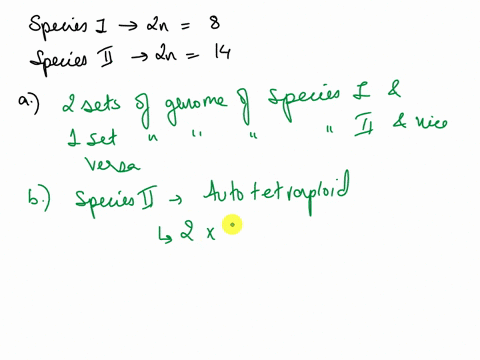 Species I → 2n = 8
Species II → 2n = 14
a.) 2 sets of genome of Species I &
1 set " " " " II & vice
versa
b.) Species II → Autotetraploid
↳ 2 x